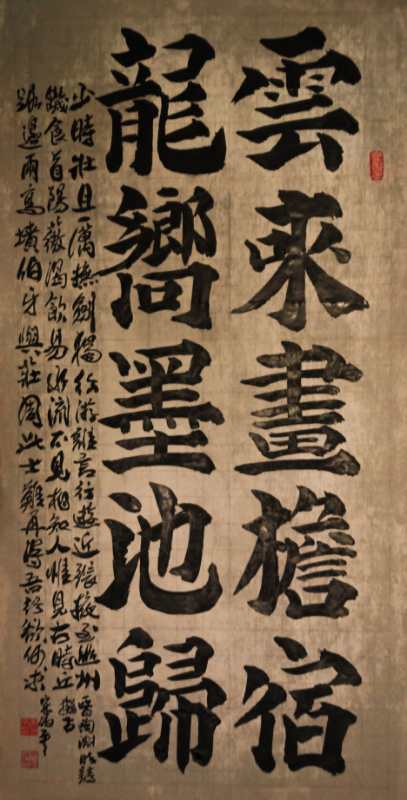 雲來畫檐宿
龍嚮墨池歸
少時壯且厲撫劍獨行遊誰言行遊近張掖至幽州
饑食首陽薇渴飲易水流不見相知人惟見古時丘
路邊兩高墳伯牙與莊周此士難再得吾行欲何求
陶淵明詩
擬古